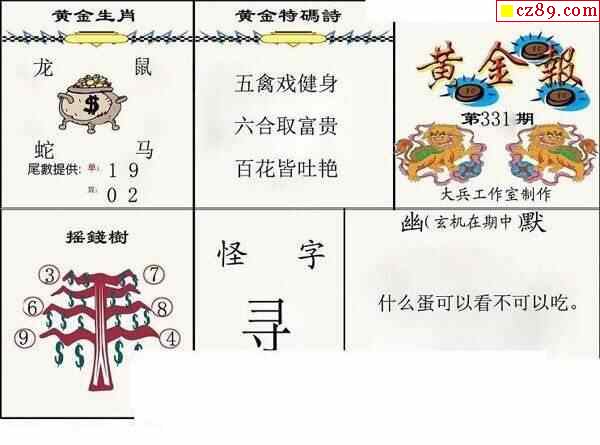 cz89.com
黄金生肖
龙 鼠
$
蛇 马
尾數提供：单：1 9
双：0 2
黄金特碼詩
五禽戏健身
六合取富贵
百花皆吐艳
黄金報
第331期
大兵工作室制作
摇錢樹
③ ⑦
⑥ ⑧
⑨ ④
怪 字
寻
幽(玄机在期中)默
什么蛋可以看不可以吃。